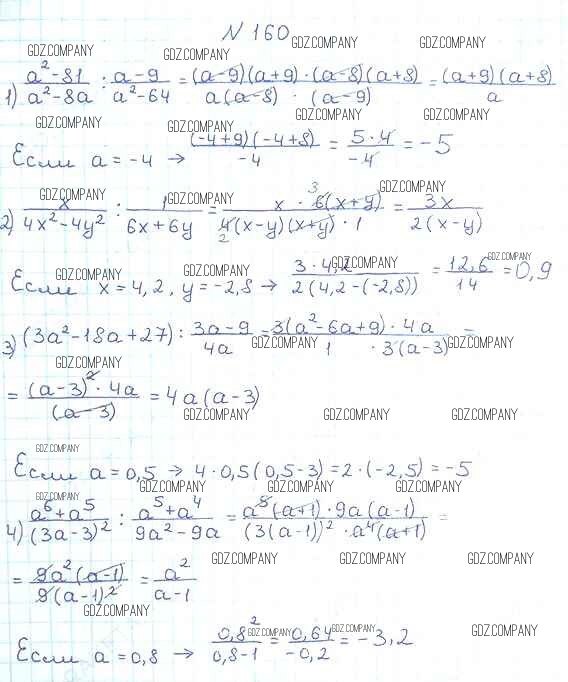 N 160
GDZ.COMPANY GDZ.COMPANY GDZ.COMPANY GDZ.COMPANY
1) (a²-81)/(a²-8a) : (a-9)/(a²-64) = ((a-9)(a+9)·(a-8)(a+8))/(a(a-8)·(a-9)) = ((a+9)(a+8))/a
GDZ.COMPANY GDZ.COMPANY GDZ.COMPANY
Если a = -4 → ((-4+9)(-4+8))/-4 = (5·4)/-4 = -5
GDZ.COMPANY GDZ.COMPANY GDZ.COMPANY
2) x/(4x²-4y²) : 1/(6x+6y) = (x · 6(x+y))/(4(x-y)(x+y)·1) = 3x/(2(x-y))
3
2
GDZ.COMPANY GDZ.COMPANY GDZ.COMPANY GDZ.COMPANY
Если x = 4,2, y = -2,8 → (3·4,2)/(2(4,2-(-2,8))) = 12,6/14 = 0,9
3) (3a²-18a+27) : (3a-9)/4a = (3(a²-6a+9)·4a)/(1 · 3(a-3)) =
GDZ.COMPANY GDZ.COMPANY GDZ.COMPANY
= ((a-3)²·4a)/(a-3) = 4a(a-3)
GDZ.COMPANY GDZ.COMPANY GDZ.COMPANY
GDZ.COMPANY
Если a = 0,5 → 4·0,5(0,5-3) = 2·(-2,5) = -5
GDZ.COMPANY GDZ.COMPANY GDZ.COMPANY
4) (a⁶+a⁵)/(3a-3)² : (a⁵+a⁴)/(9a²-9a) = (a⁵(a+1)·9a(a-1))/((3(a-1))²·a⁴(a+1)) =
GDZ.COMPANY GDZ.COMPANY GDZ.COMPANY
= (9a²(a-1))/(9(a-1)²) = a²/(a-1)
GDZ.COMPANY
GDZ.COMPANY GDZ.COMPANY GDZ.COMPANY
Если a = 0,8 → 0,8²/(0,8-1) = 0,64/-0,2 = -3,2